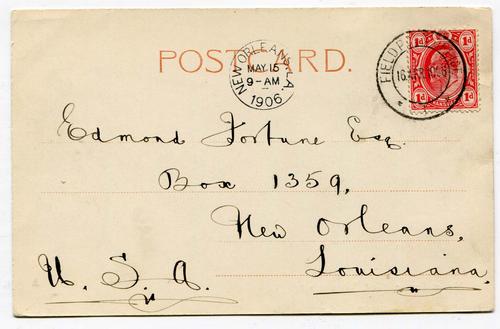 POST CARD.
NEW ORLEANS, LA.
MAY 15
9-AM
1906
FIELD
1d 1d
1d 1d
Edmond Fortune Esq.
Box 1359,
New Orleans,
Louisiana.
U. S. A.